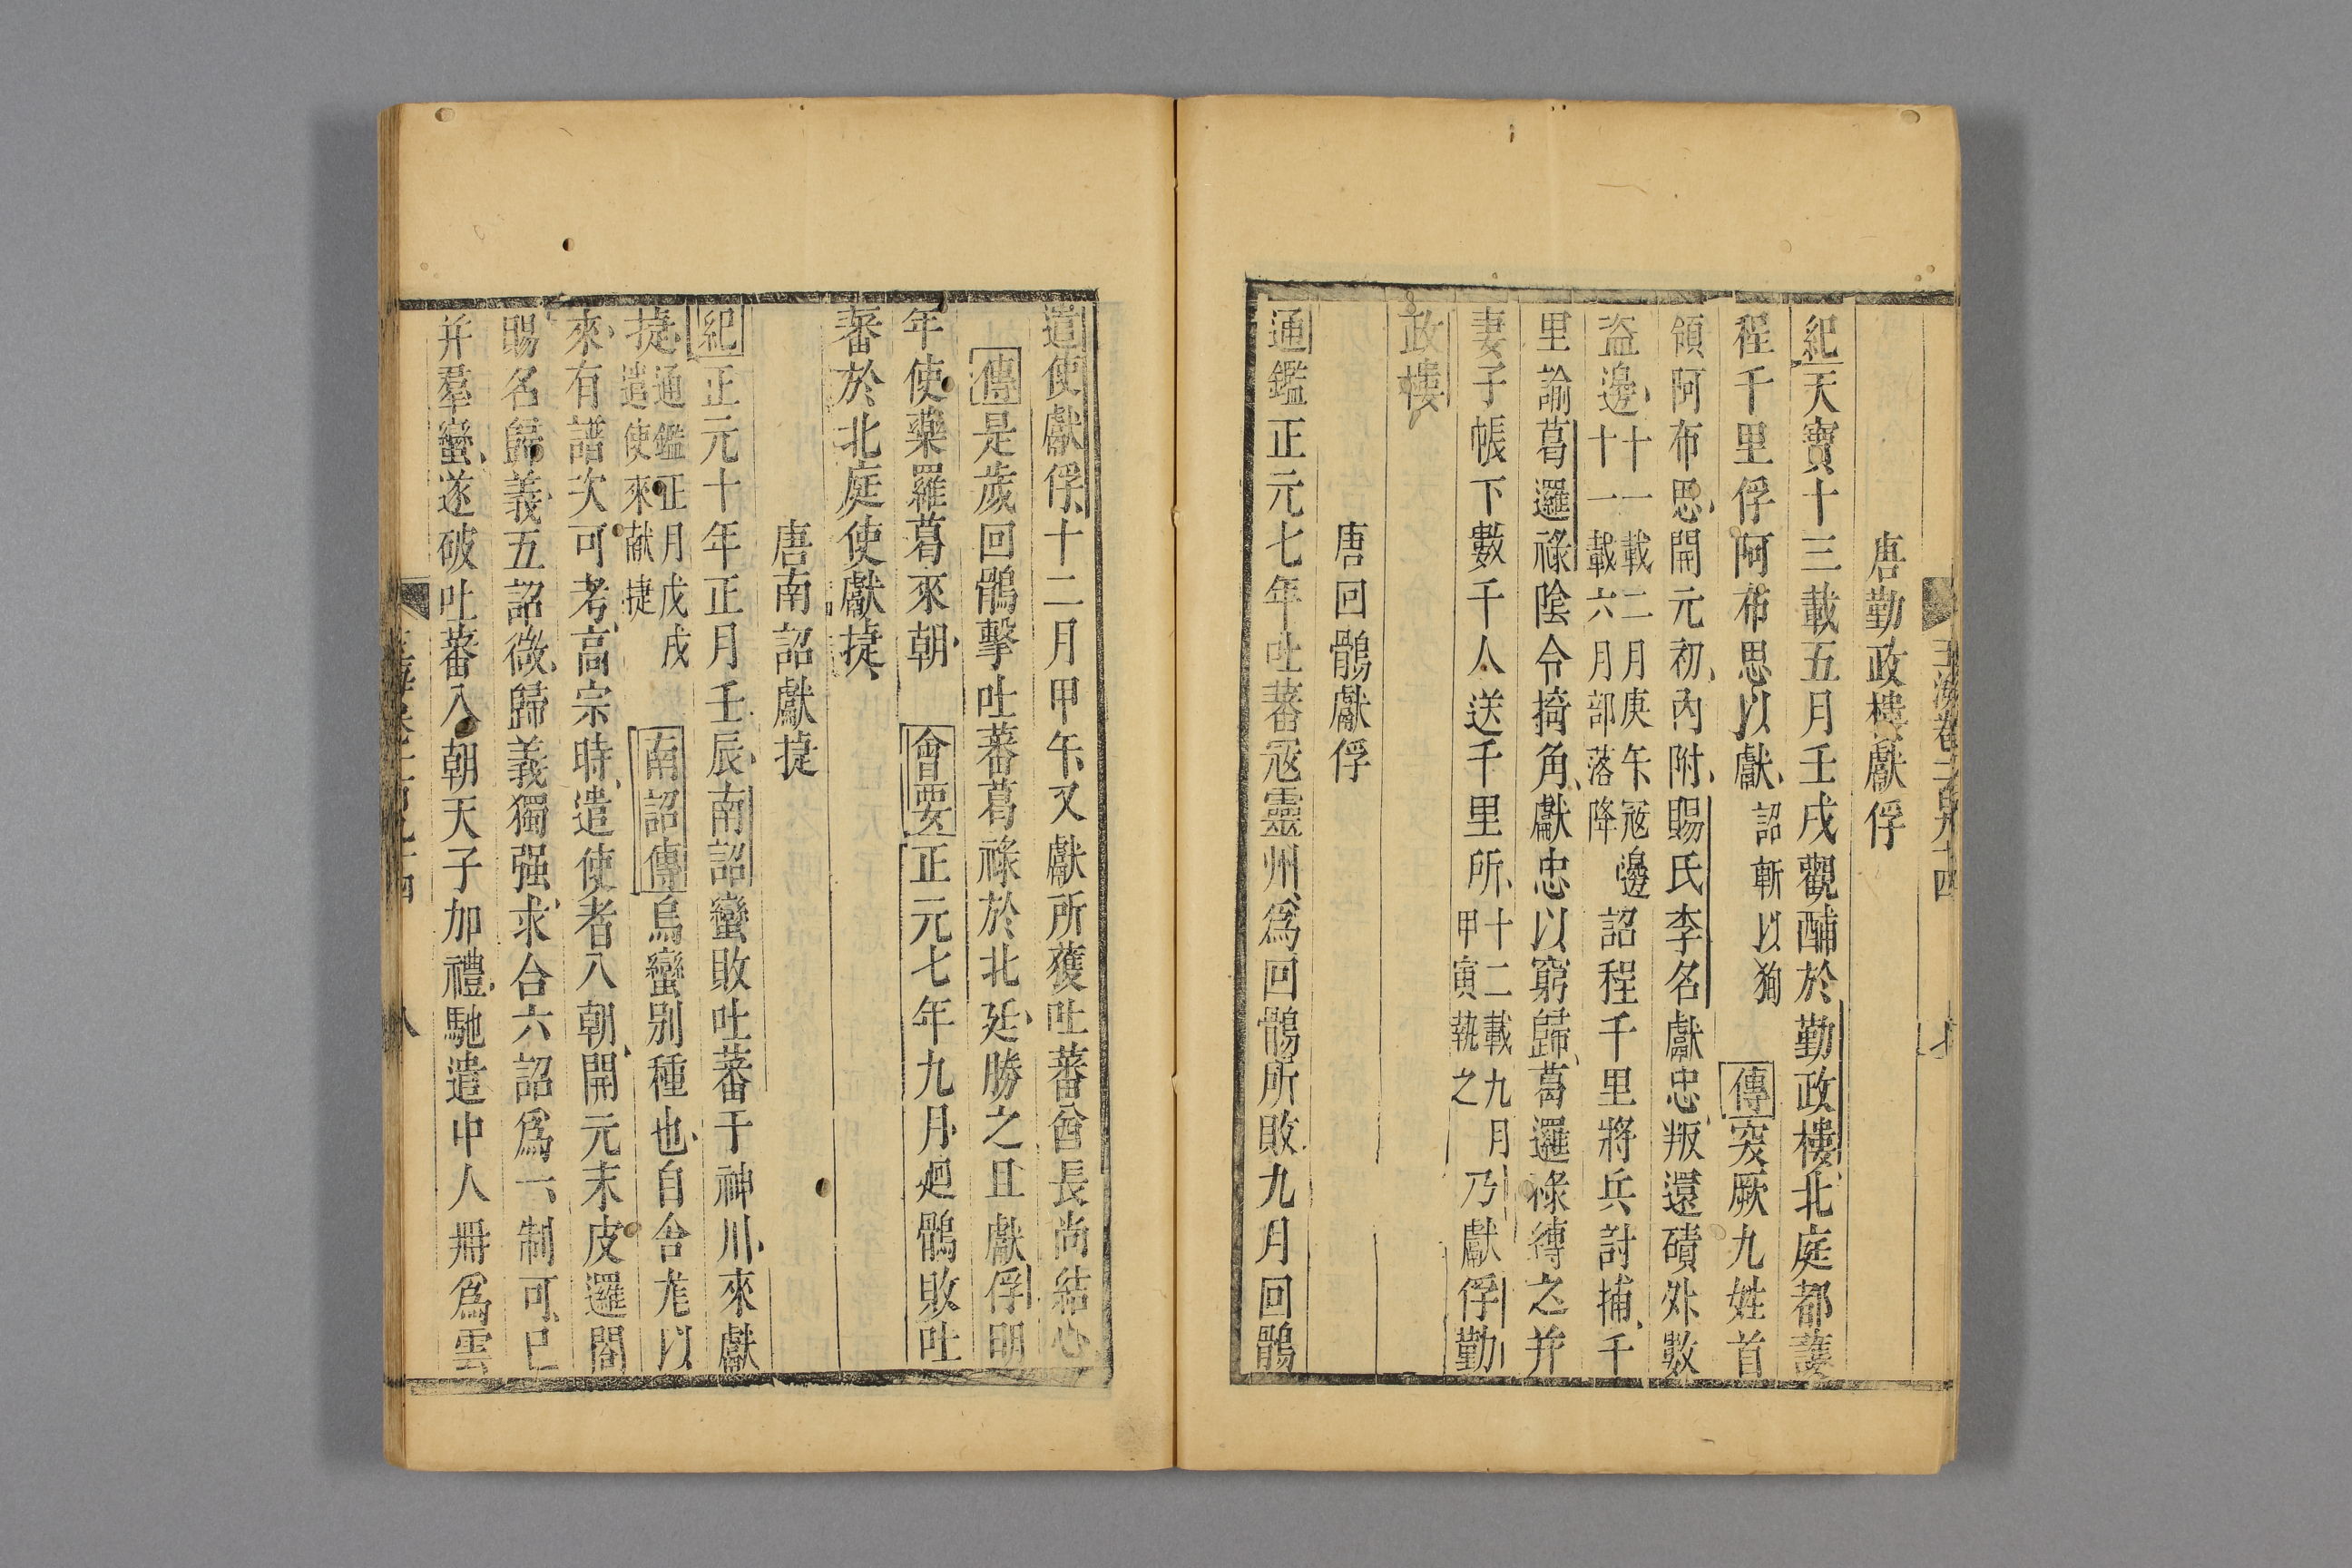 唐勤政樓獻俘
紀天寶十三載五月壬戌觀酺於勤政樓北庭都護
程千里俘阿布思以獻詔斬以狥傳突厥九姓首
領阿布思開元初內附賜氏李名獻忠叛還磧外數
盜邊十一載二月庚午冦邊十一載六月部落降詔程千里將兵討捕千
里諭葛邏祿隂令掎角獻忠以窮歸葛邏祿縳之并
妻子帳下數千人送千里所十二載九月甲寅執之乃獻俘勤
政樓
唐回鶻獻俘
通鑑正元七年吐蕃冦靈州爲回鶻所敗九月回鶻
遣使獻俘十二月甲午又獻所獲吐蕃酋長尚結心
傳是歲回鶻擊吐蕃葛祿於北廷勝之且獻俘明
年使藥羅葛來朝會要正元七年九月廻鶻敗吐
蕃於北庭使獻捷
唐南詔獻捷
紀正元十年正月壬辰南詔蠻敗吐蕃于神川來獻
捷通鑑正月戊戌遣使來献捷南詔傳烏蠻别種也自舍尨以
來有譜次可考高宗時遣使者入朝開元末皮邏閤
賜名歸義五詔微歸義獨强求合六詔爲一制可已
并羣蠻遂破吐蕃入朝天子加禮馳遣中人冊爲雲
八